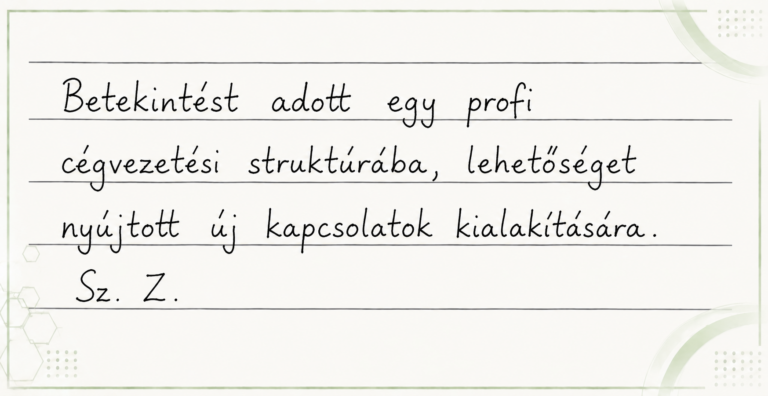 Betekintést adott egy profi
cégvezetési struktúrába, lehetőséget
nyújtott új kapcsolatok kialakítására.
Sz. Z.